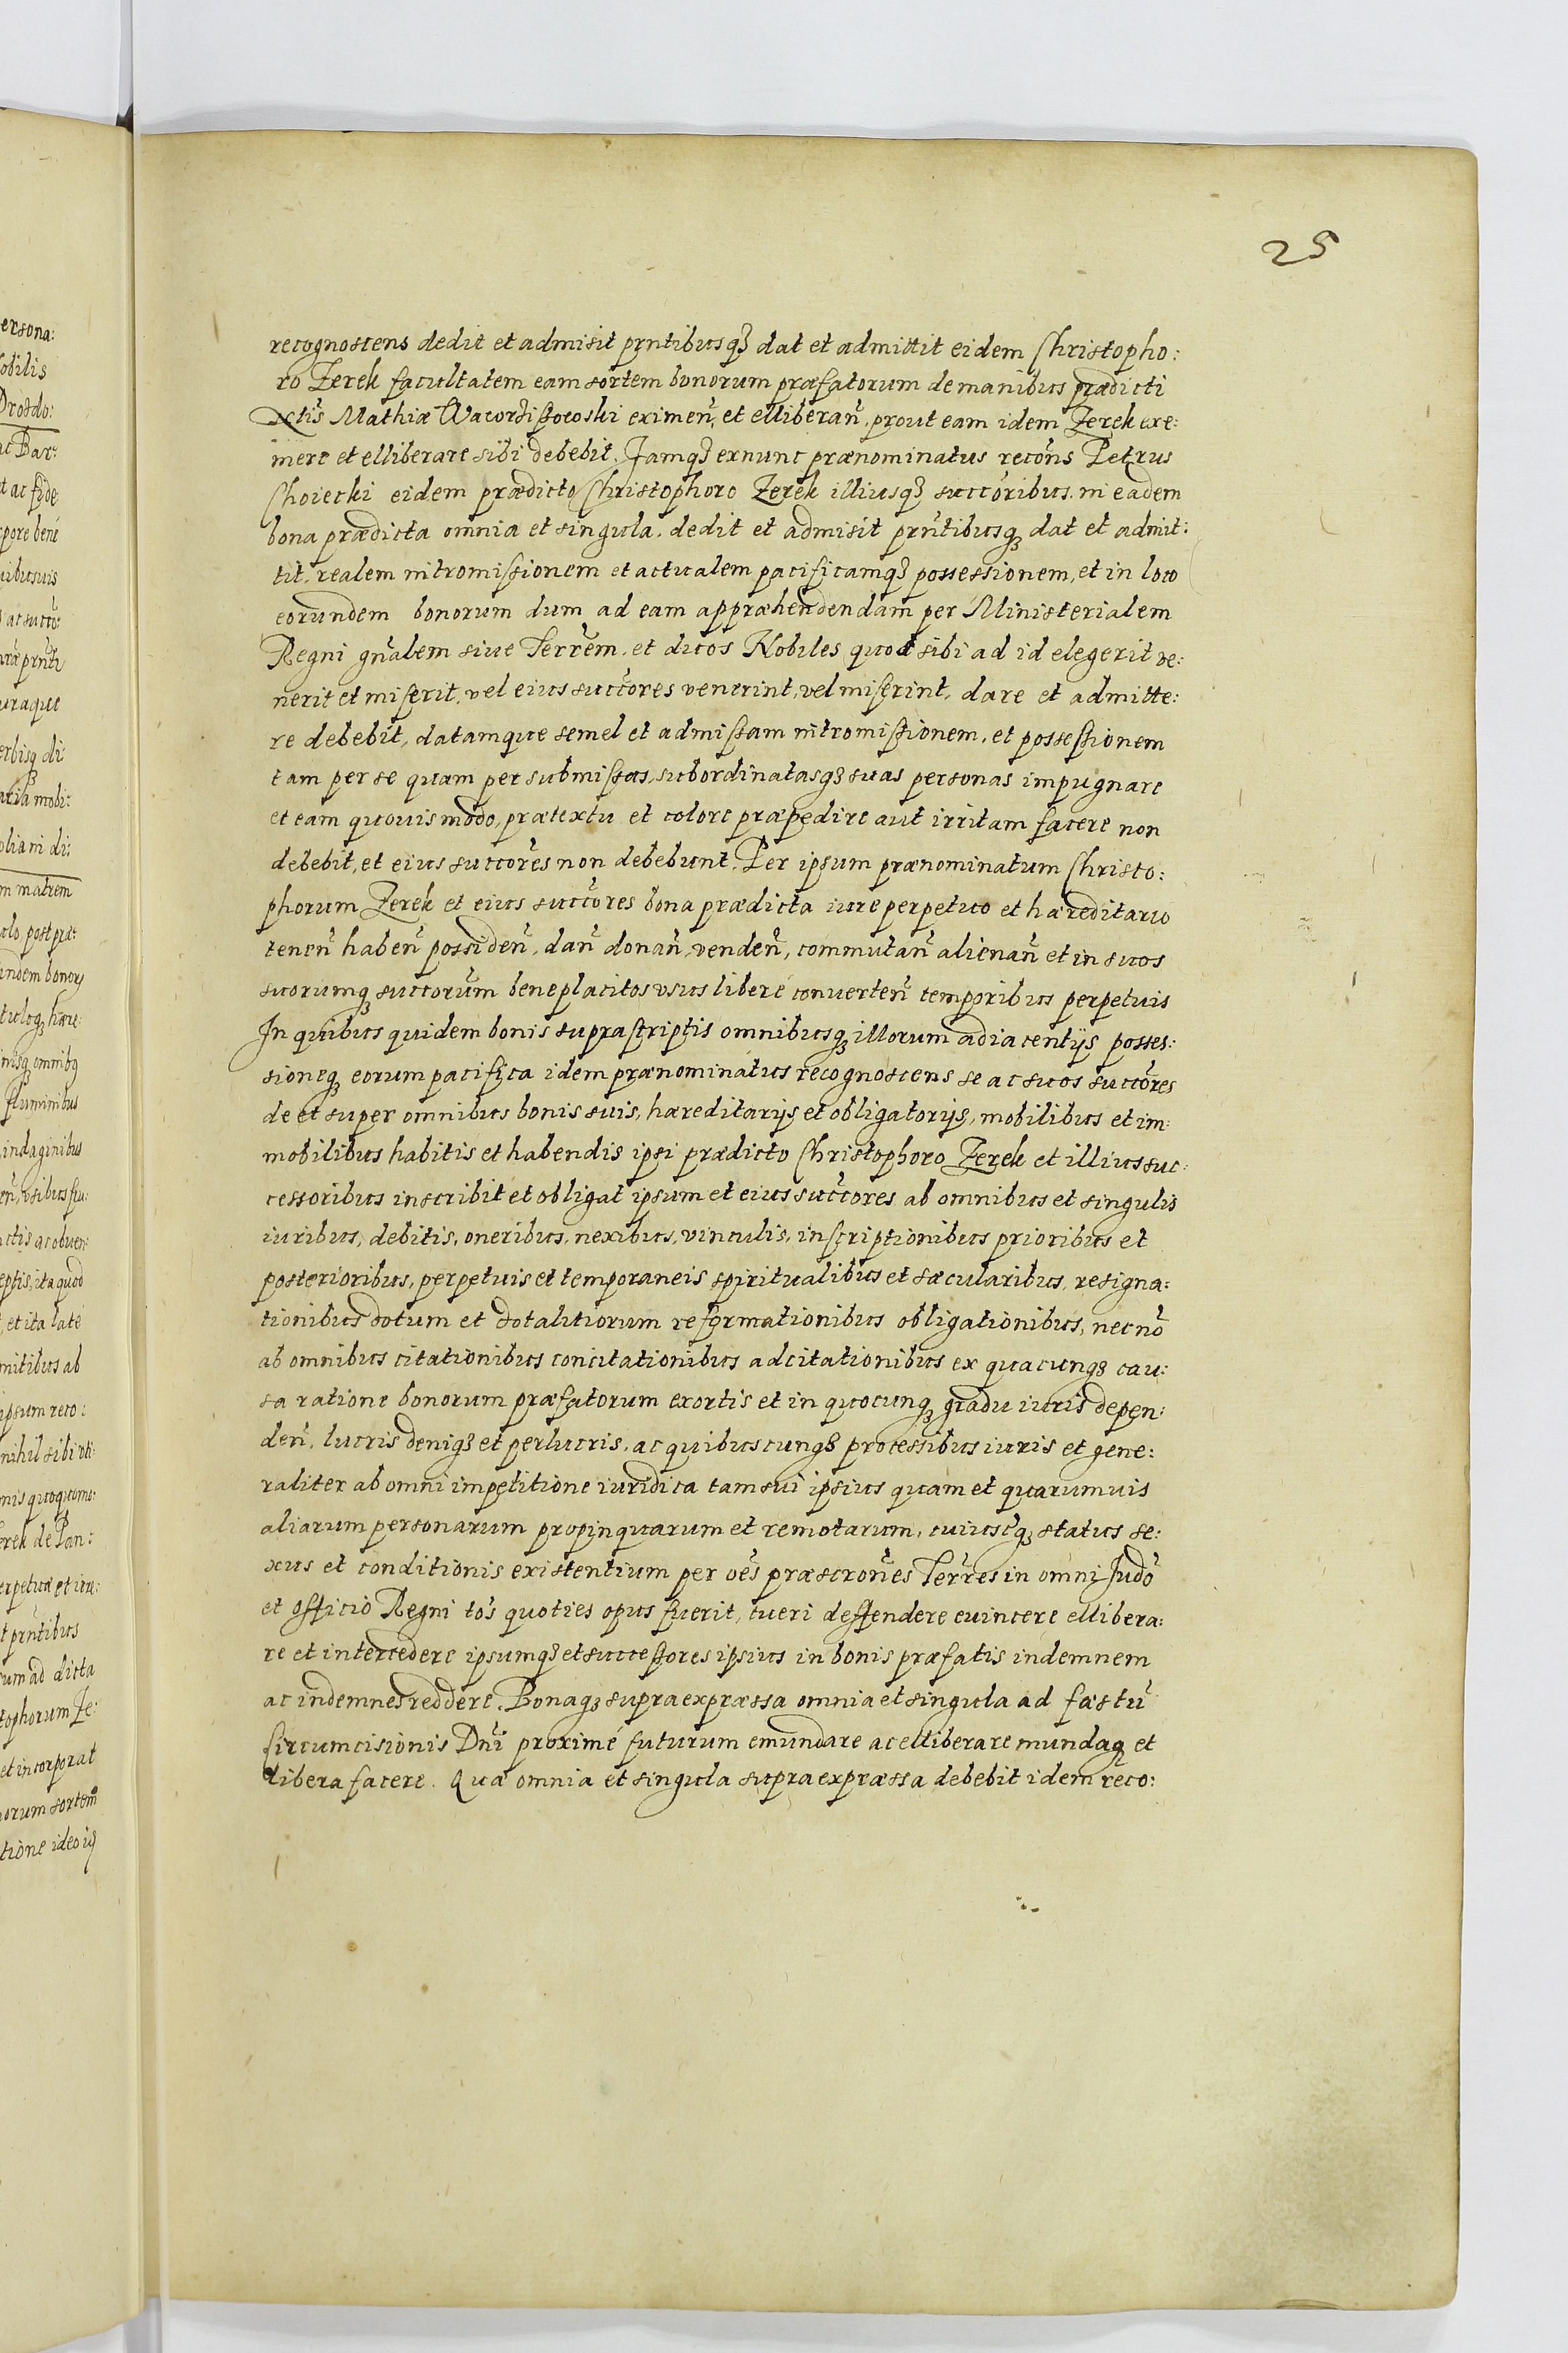 25
recognoscens dedit et admisit prntibusqꝫ dat et admittit eidem Christopho:
ro Zerek facultatem eam sortem bonorum præfatorum de manibus prædicti
Mathiæ eximen̄, et elliberan̄, prout eam idem Zerek exe:
mere et elliberare sibi debebit. Jamqꝫ ex nunc prænominatus recōns Petrus
Choiecki eidem prædicto Christophoro Zerek illiusqꝫ succōribus in eadem
bona prædicta omnia et singula, dedit et admisit prn̄tibusqꝫ dat et admit:
tit, realem intromissionem et actualem pacificamqꝫ possessionem, et in loco
eorundem bonorum dum ad eam appræhendendam per Ministerialem
Regni gn̄alem siue Terrēm, et duos Nobiles quos sibi ad id elegerit ve:
nerit et miserit, vel eius succōres venerint, vel miserint, dare et admitte:
re debebit, datamque semel et admissam intromissionem, et possessionem
tam per se quam per submissas, subordinatasqꝫ suas personas impugnare
et eam quouis modo, prætextu et colore præpedire aut irritam facere non
debebit, et eius succōres non debebunt. Per ipsum prænominatum Christo:
phorum Zerek et eius succōres bona prædicta iure perpetuo et hæreditario
tenen̄ haben̄ possiden̄, dan̄ donan̄, venden̄, commutan̄ alienan̄ et in suos
suorumqꝫ succorūm beneplacitos vsus liberé conuerten̄ temporibus perpetuis
In quibus quidem bonis suprascriptis omnibusqꝫ illorum adiacentijs posses:
sioneqꝫ eorum pacifica idem prænominatus recognoscens se ac suos succōres
de et super omnibus bonis suis, hæreditarijs et obligatorijs, mobilibus et im:
mobilibus habitis et habendis ipsi prædicto Christophoro Zerek et illius suc:
cessoribus inscribit et obligat ipsum et eius succōres ab omnibus et singulis
iuribus, debitis, oneribus, nexibus, vinculis, inscriptionibus prioribus et
posterioribus, perpetuis et temporaneis spiritualibus et sæcularibus, resigna:
tionibus dotum et dotalitiorum reformationibus obligationibus, necnō
ab omnibus citationibus concitationibus adcitationibus ex quacunqꝫ cau:
sa ratione bonorum præfatorum exortis et in quocunqꝫ gradu iuris depen:
den̄, lucris deniqꝫ et perlucris, ac quibuscunqꝫ processibus iuris et gene:
raliter ab omni impetitione iuridica tam sui ipsius quam et quarumuis
aliarum personarum propinquarum et remotarum, cuiuscqꝫ status se:
xus et conditionis existentium per oēs præscrōnes Terrēs in omni Judō
et officio Regni tōs quoties opus fuerit, tueri deffendere euincere ellibera:
re et intercedere ipsumqꝫ et successores ipsius in bonis præfatis indemnem
ac indemnes reddere. Bonaqꝫ supraexpræssa omnia et singula ad fæstū
Circumcisionis Dnī proximé futurum emundare ac elliberare mundaqꝫ et
libera facere. Quæ omnia et singula supraexpræssa debebit idem reco: